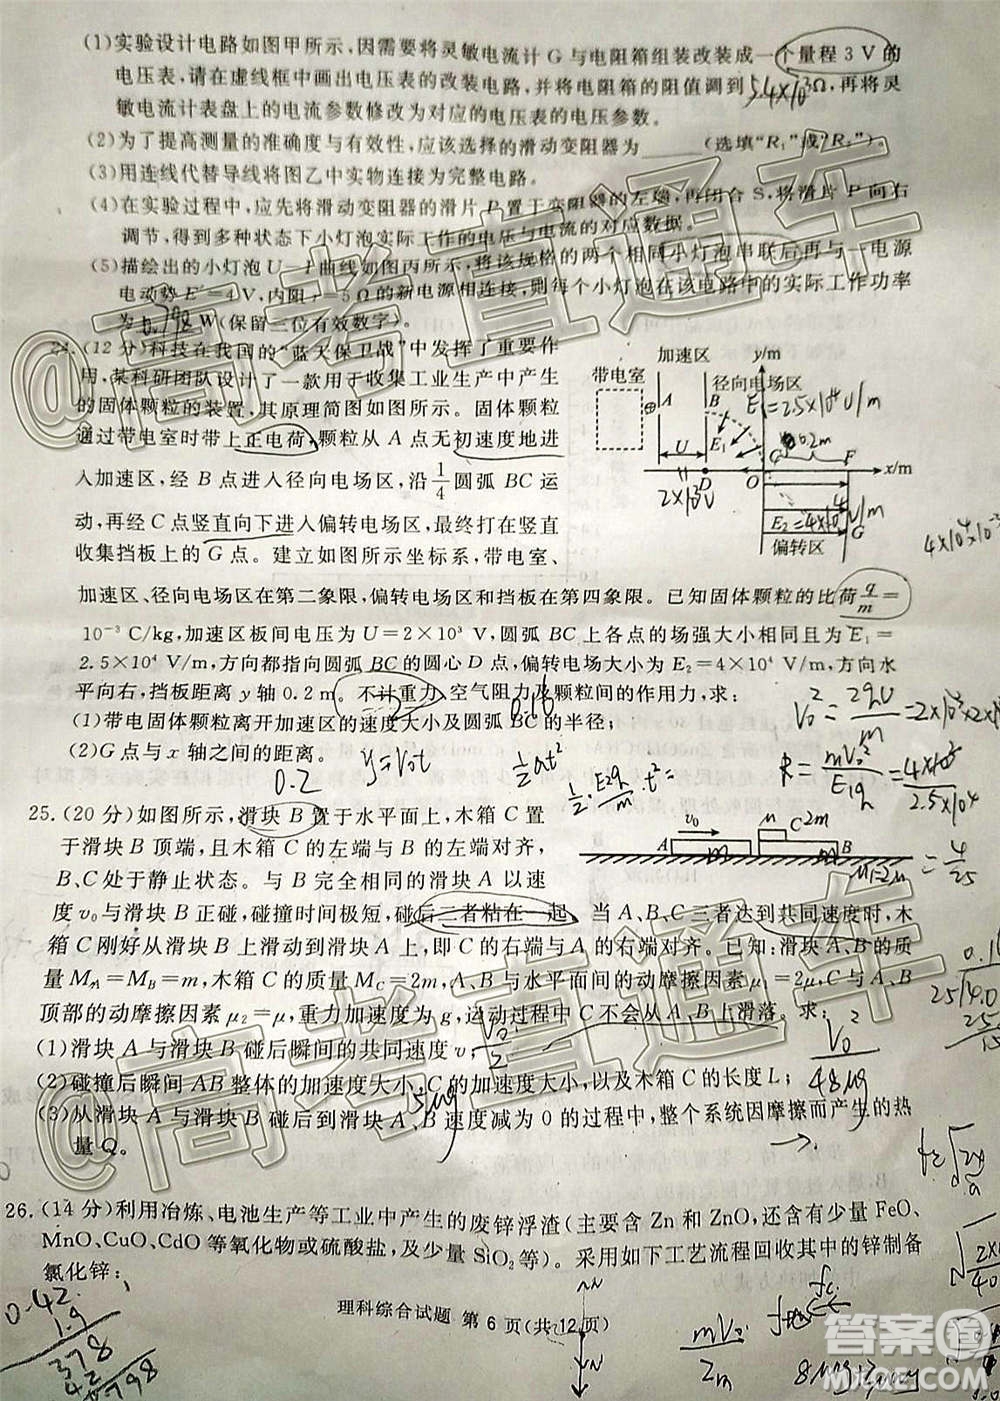 (1)实验设计电路如图甲所示,因需要将灵敏电流计 G 与电阻箱组装改装成一个量程 3 V 的
电压表,请在虚线框中画出电压表的改装电路,并将电阻箱的阻值调到 5.4×10³Ω,再将灵
敏电流计表盘上的电流参数修改为对应的电压表的电压参数。
(2)为了提高测量的准确度与有效性,应该选择的滑动变阻器为______(选填“R₁”或“R₂”)。
(3)用连线代替导线将图乙中实物连接为完整电路。
(4)在实验过程中,应先将滑动变阻器的滑片 P 置于变阻器的左端,再闭合 S,将滑片 P 向右
调节,得到多种状态下小灯泡实际工作的电压与电流的对应数据。
(5)描绘出的小灯泡 U-I 曲线如图丙所示,将该规格的两个相同小灯泡串联后再与一电源
电动势 E=4 V,内阻 r=5 Ω 的新电源相连接,则每个小灯泡在该电路中的实际工作功率
为 0.798 W(保留三位有效数字)。
24.(12 分)科技在我国的“蓝天保卫战”中发挥了重要作
用,某科研团队设计了一款用于收集工业生产中产生
的固体颗粒的装置,其原理简图如图所示。固体颗粒
通过带电室时带上正电荷,颗粒从 A 点无初速度地进
入加速区,经 B 点进入径向电场区,沿 1/4 圆弧 BC 运
动,再经 C 点竖直向下进入偏转电场区,最终打在竖直
收集挡板上的 G 点。建立如图所示坐标系,带电室、
加速区 y/m
带电室 A B 径向电场区
E₁=2.5×10⁴V/m
U E₁ C 0.2m F
D O x/m
2×10³V
E₂ 4×10⁴V/m
G
偏转区
加速区、径向电场区在第二象限,偏转电场区和挡板在第四象限。已知固体颗粒的比荷 q/m =
10⁻³ C/kg,加速区板间电压为 U=2×10³ V,圆弧 BC 上各点的场强大小相同且为 E₁=
2.5×10⁴ V/m,方向都指向圆弧 BC 的圆心 D 点,偏转电场大小为 E₂=4×10⁴ V/m,方向水
平向右,挡板距离 y 轴 0.2 m。不计重力、空气阻力及颗粒间的作用力,求:
(1)带电固体颗粒离开加速区的速度大小及圆弧 BC 的半径;
(2)G 点与 x 轴之间的距离。
0.16
0.2
y=v₀t
½at²
½·E₂q/m·t²
25.(20 分)如图所示,滑块 B 置于水平面上,木箱 C 置
于滑块 B 顶端,且木箱 C 的左端与 B 的左端对齐,
B、C 处于静止状态。与 B 完全相同的滑块 A 以速
度 v₀与滑块 B 正碰,碰撞时间极短,碰后二者粘在一起。当 A、B、C 三者达到共同速度时,木
箱 C 刚好从滑块 B 上滑动到滑块 A 上,即 C 的右端与 A 的右端对齐。已知:滑块 A、B 的质
量 M_A=M_B=m,木箱 C 的质量 M_C=2m,A、B 与水平面间的动摩擦因素 μ₁=2μ,C 与 A、B
顶部的动摩擦因素 μ₂=μ,重力加速度为 g,运动过程中 C 不会从 AB 上滑落。求:
A v₀ m C 2m B
(1)滑块 A 与滑块 B 碰后瞬间的共同速度 v;
(2)碰撞后瞬间 AB 整体的加速度大小,以及木箱 C 的长度 L;
(3)从滑块 A 与滑块 B 碰后到滑块 A、B 速度减为 0 的过程中,整个系统因摩擦而产生的热
量 Q。
26.(14 分)利用冶炼、电池生产等工业中产生的废锌浮渣(主要含 Zn 和 ZnO,还含有少量 FeO、
MnO、CuO、CdO 等氧化物或硫酸盐,及少量 SiO₂ 等)。采用如下工艺流程回收其中的锌制备
氯化锌:
理科综合试题 第 6 页(共 12 页)
@高考直通车
@高考直通车
答案圈
MXQE.COM